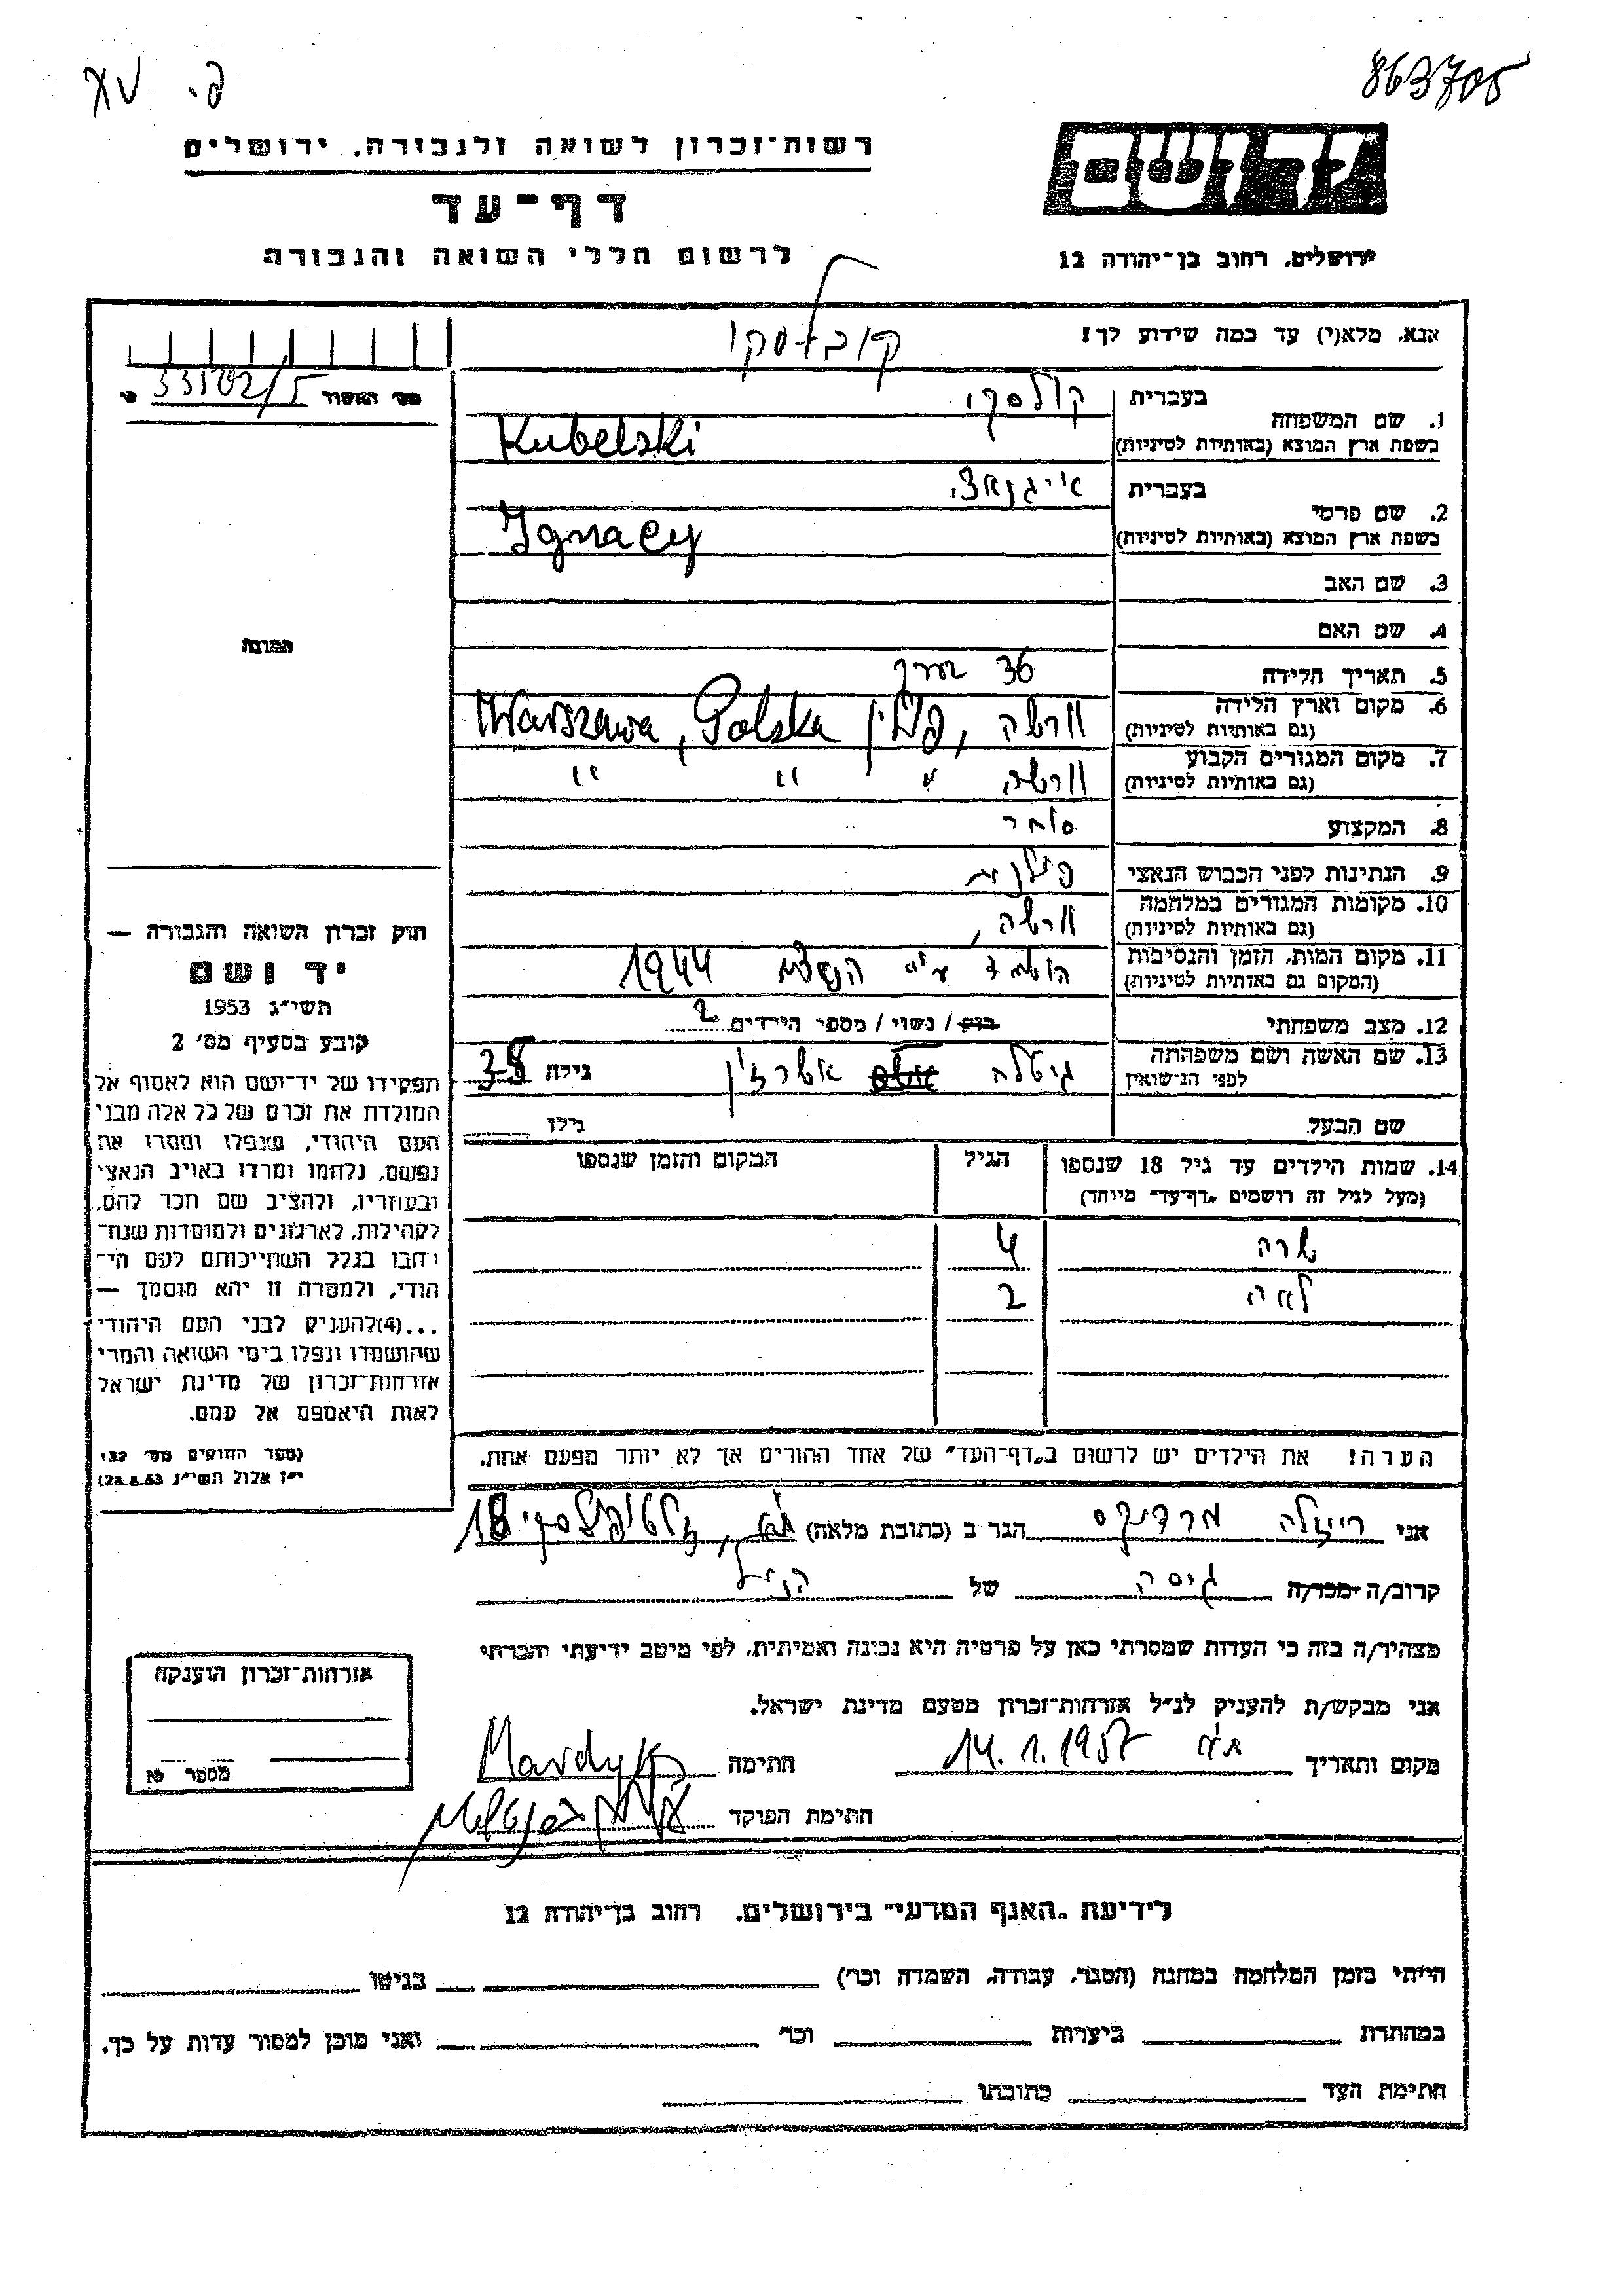 863705
רשות־זכרון לשואה ולגבורה, ירושלים
דף־עד
לרשום חללי השואה והגבורה
יד ושם
ירושלים, רחוב בן־יהודה 12
אנא, מלא(י) עד כמה שידוע לך!
קובלסקי
מס׳ האשור
1. שם המשפחה
בעברית
בשפת ארץ המוצא (באותיות לטיניות)
Kubelski
2. שם פרטי
בעברית איגנאצי
בשפת ארץ המוצא (באותיות לטיניות)
Ignacy
3. שם האב
4. שם האם
5. תאריך הלידה 36 בערך
6. מקום וארץ הלידה
(גם באותיות לטיניות)
וורשה, פולין Warszawa, Polska
7. מקום המגורים הקבוע
(גם באותיות לטיניות)
וורשה " " "
8. המקצוע סוחר
9. הנתינות לפני הכבוש הנאצי פולנית
10. מקומות המגורים במלחמה
(גם באותיות לטיניות)
וורשה,
11. מקום המות, הזמן והנסיבות
(המקום גם באותיות לטיניות)
הושמד ע״י 1944
12. מצב משפחתי רווק / נשוי / מספר הילדים 2
13. שם האשה ושם משפחתה
לפני הנישואין
גיטלה גילה 38
שם הבעל גילו
14. שמות הילדים עד גיל 18 שנספו
(מעל לגיל זה רושמים „דף־עד״ מיוחד)
הגיל
המקום והזמן שנספו
שרה 4
לאה 2
הערה! את הילדים יש לרשום ב„דף־העד״ של אחד ההורים אך לא יותר מפעם אחת.
התמונה
חוק זכרון השואה והגבורה —
יד ושם
תשי״ג 1953
קובע בסעיף מס׳ 2
תפקידו של יד־ושם הוא לאסוף אל
המולדת את זכרם של כל אלה מבני
העם היהודי, שנפלו ומסרו את
נפשם, נלחמו ומרדו באויב הנאצי
ובעוזריו, ולהציב שם וזכר להם,
לקהילות, לארגונים ולמוסדות שנח־
רבו בגלל השתייכותם לעם הי־
הודי, ולמטרה זו יהא מוסמך —
...(4)להעניק לבני העם היהודי
שהושמדו ונפלו בימי השואה והמרי
אזרחות־זכרון של מדינת ישראל
לאות היאספם אל עמם.
(ספר החוקים מס׳ 132
י״ז אלול תשי״ג 28.8.53)
אני רייזלה מרדיקס הגר ב (כתובת מלאה) 18
קרוב/ה מכר/ה גיסה של הנ״ל
מצהיר/ה בזה כי העדות שמסרתי כאן על פרטיה היא נכונה ואמיתית, לפי מיטב ידיעתי והכרתי
אני מבקש/ת להעניק לנ״ל אזרחות־זכרון מטעם מדינת ישראל.
מקום ותאריך ת״א 14.1.1957 חתימה Mardyks
חתימת הפוקד
אזרחות־זכרון הוענקה
מספר
לידיעת „האגף המדעי״ בירושלים, רחוב בן־יהודה 12
הייתי בזמן המלחמה במחנה (הסגר, עבודה, השמדה וכו׳) בגיטו
במחתרת ביערות וכו׳ ואני מוכן למסור עדות על כך.
חתימת העד כתובתו